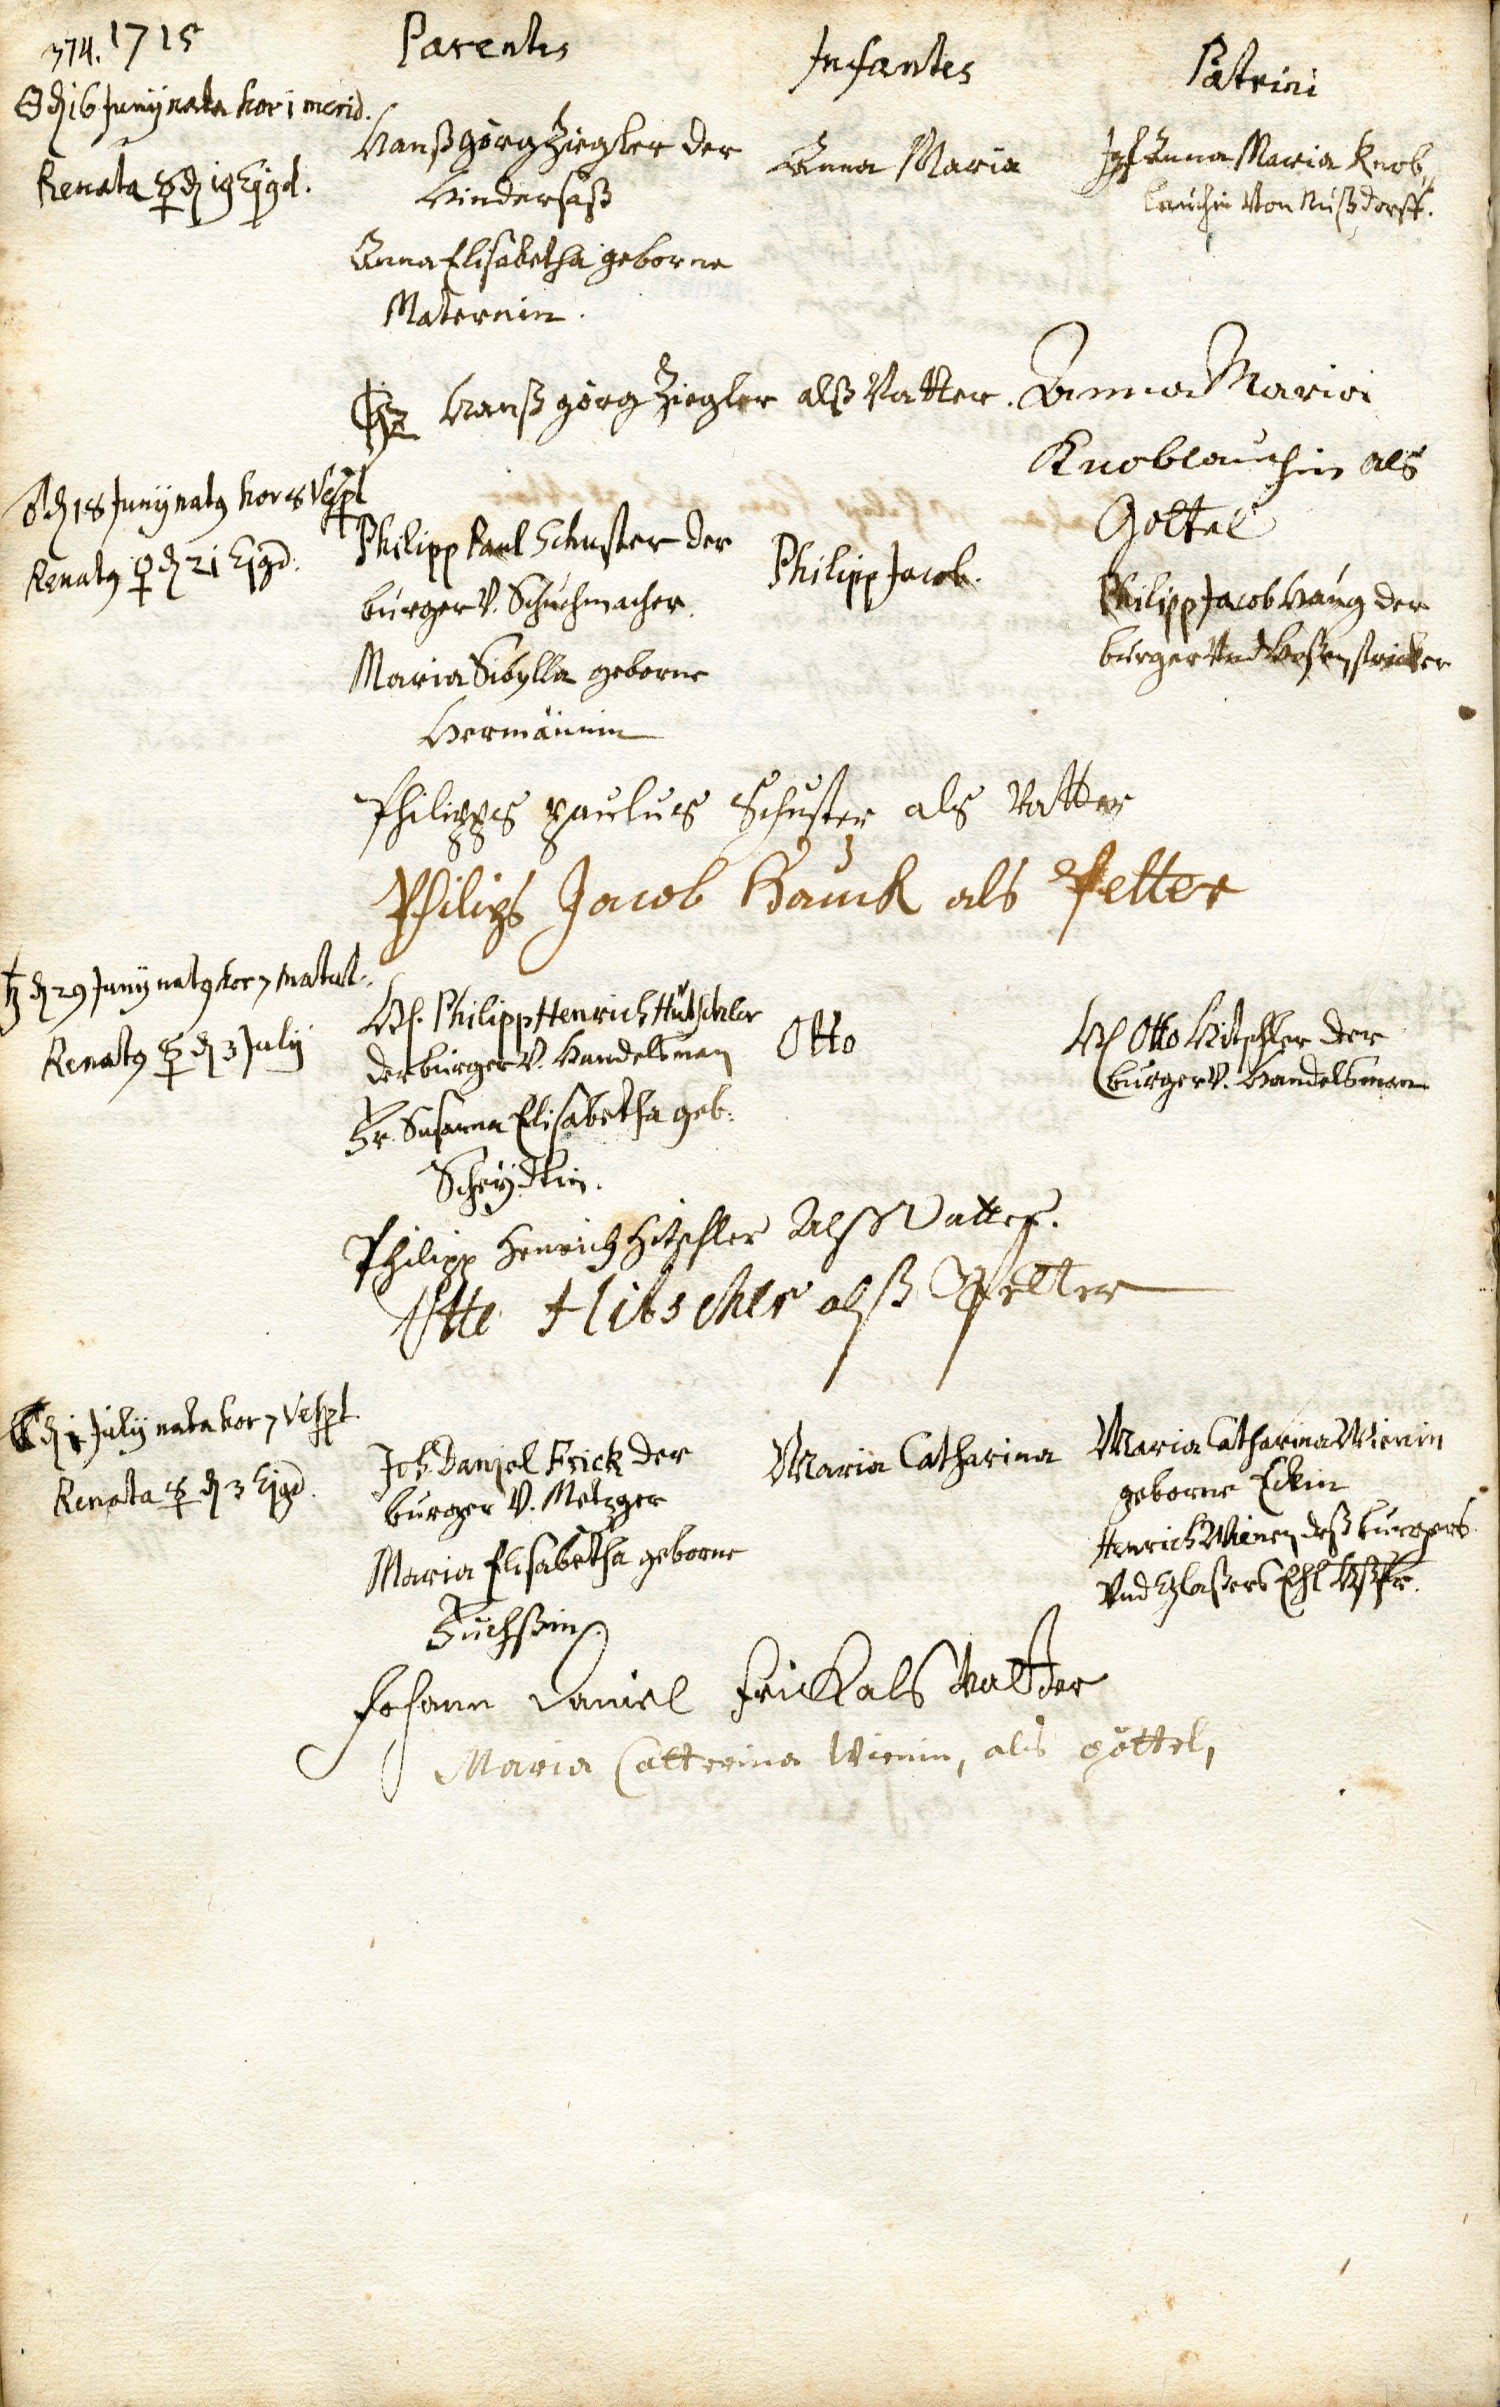 374. 1715
Parentes
Infantes
Patrini
☉ d 16 Junÿ nata hor 1 merid.
Renata ☿ d 19 Ejqd.
Hanß görg Ziegler der
Hindersäß
Anna Elisabetha geborne
Maternin.
Anna Maria
Jgf Anna Maria Knob„
lauchin Von Nußdorff.
HZ Hanß görg Ziegler alß Vatter.
Anna Maria
Knoblauchin als
Gottel
♂ d 18 Junÿ nat9 hor 8 Vesp̃t
Renat9 ♀ d 21 Ejqd.
Philipp Paul Schuster der
burger V. Schuhmacher.
Maria Sibylla geborne
Hermännin
Philipp Jacob.
Philipp Jacob Haug der
burger Und Hosenstricker
Philipps paulus Schuster als Vatter
Philips Jacob Hauck als Petter
♄ d 29 Junÿ nat9 hor 7 matut.
Renat9 ☿ d 3 Julÿ
H. Philipp Henrich Hütschler
der burger V. Handelsman
Fr. Susanna Elisabetha geb.
Scheydtin.
Otto
H Otto Hitschler der
burger V. Handelsman
Philipp Henrich Hitschler Alß Vatter.
Otto Hitschler alß Petter
☾ d 1 Julÿ nata hor 7 Vesp̃t
Renata ☿ d 3 Ejqd.
Joh Daniel Frick der
burger V. Metzger
Maria Elisabetha geborne
Fuchßin.
Maria Catharina
Maria Catharina Wienin
geborne Eckin
Henrich Wienen deß burgers
Und Glaßers Ehl Haßfr.
Johann Daniel Frick als Vatter
Maria Catterina Wienin, als göttel,